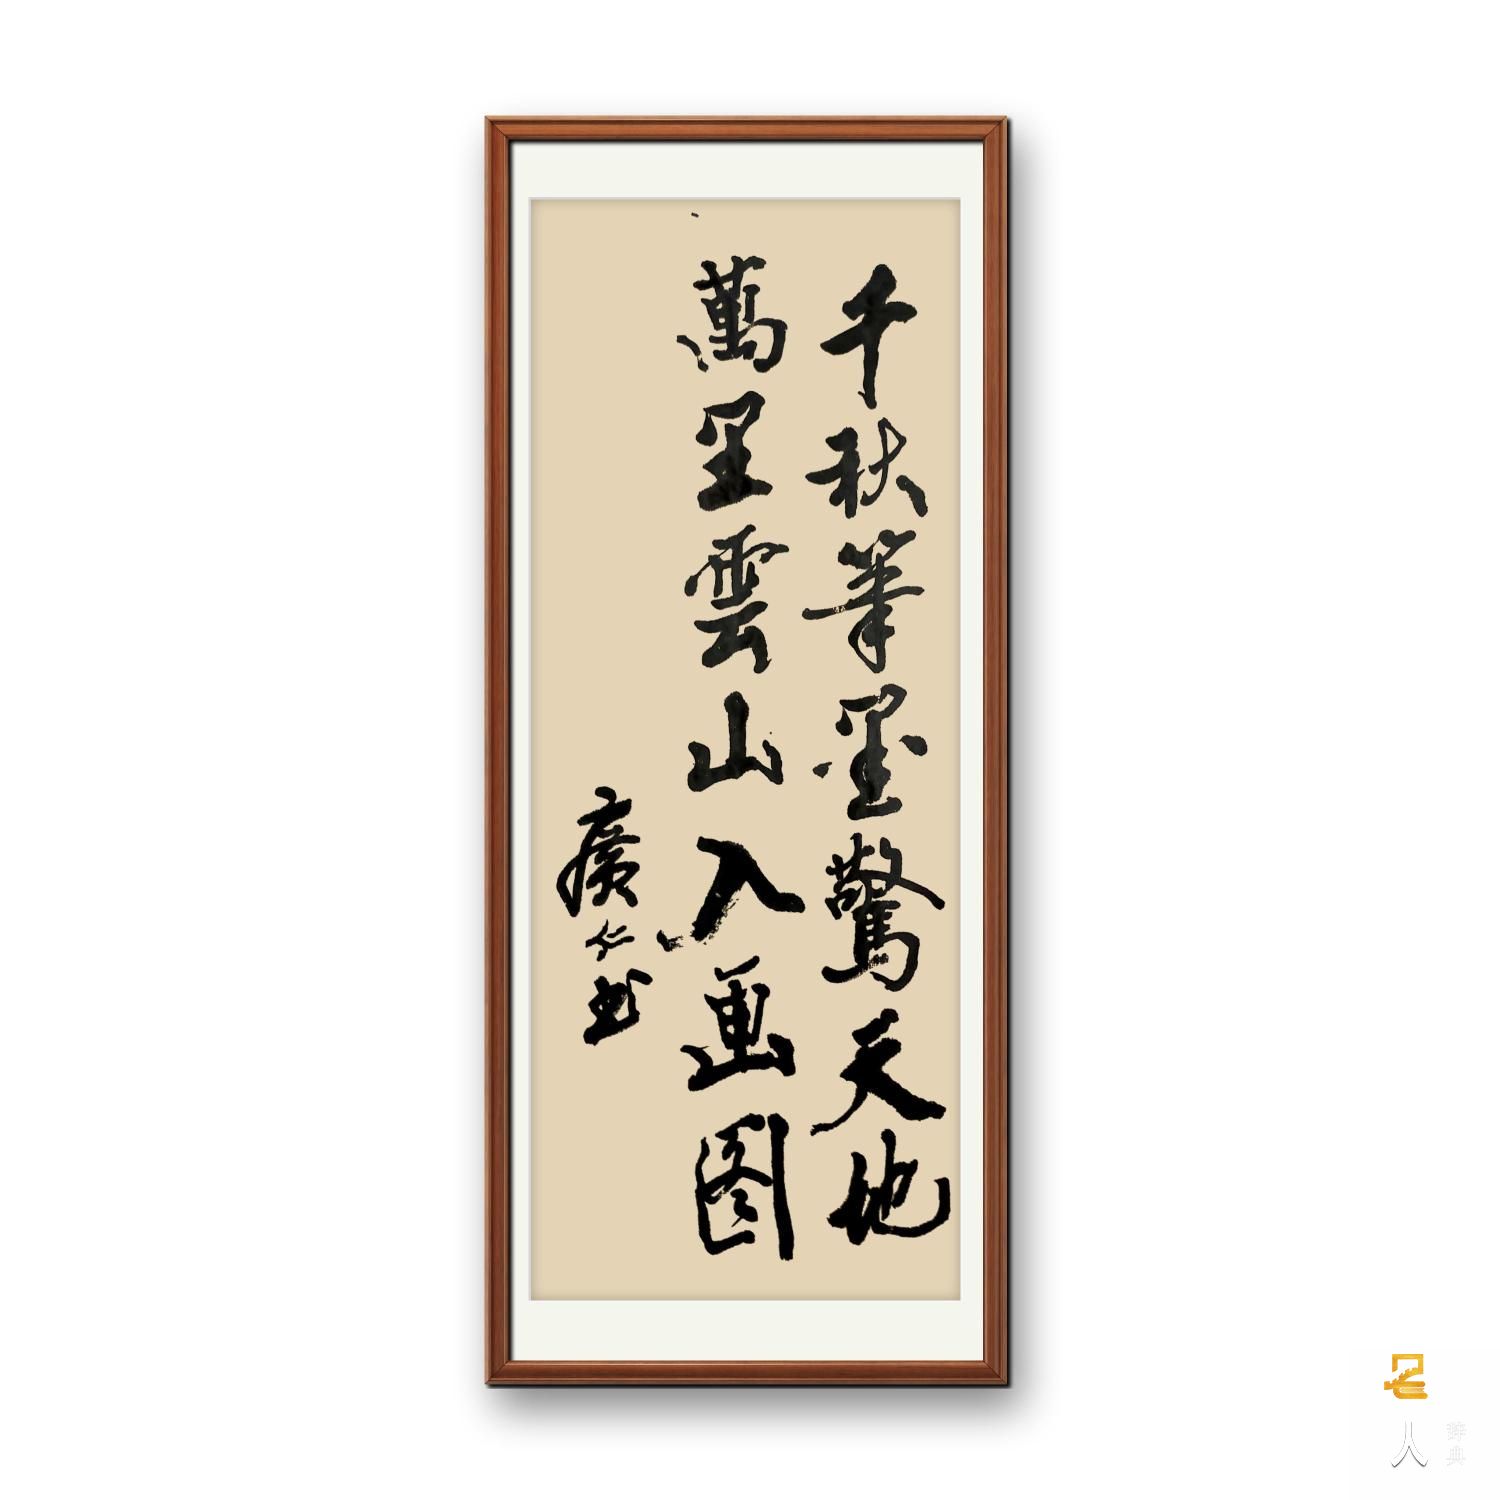 千秋筆墨驚天地
萬里雲山入画图
廣仁书
名
人
辞典